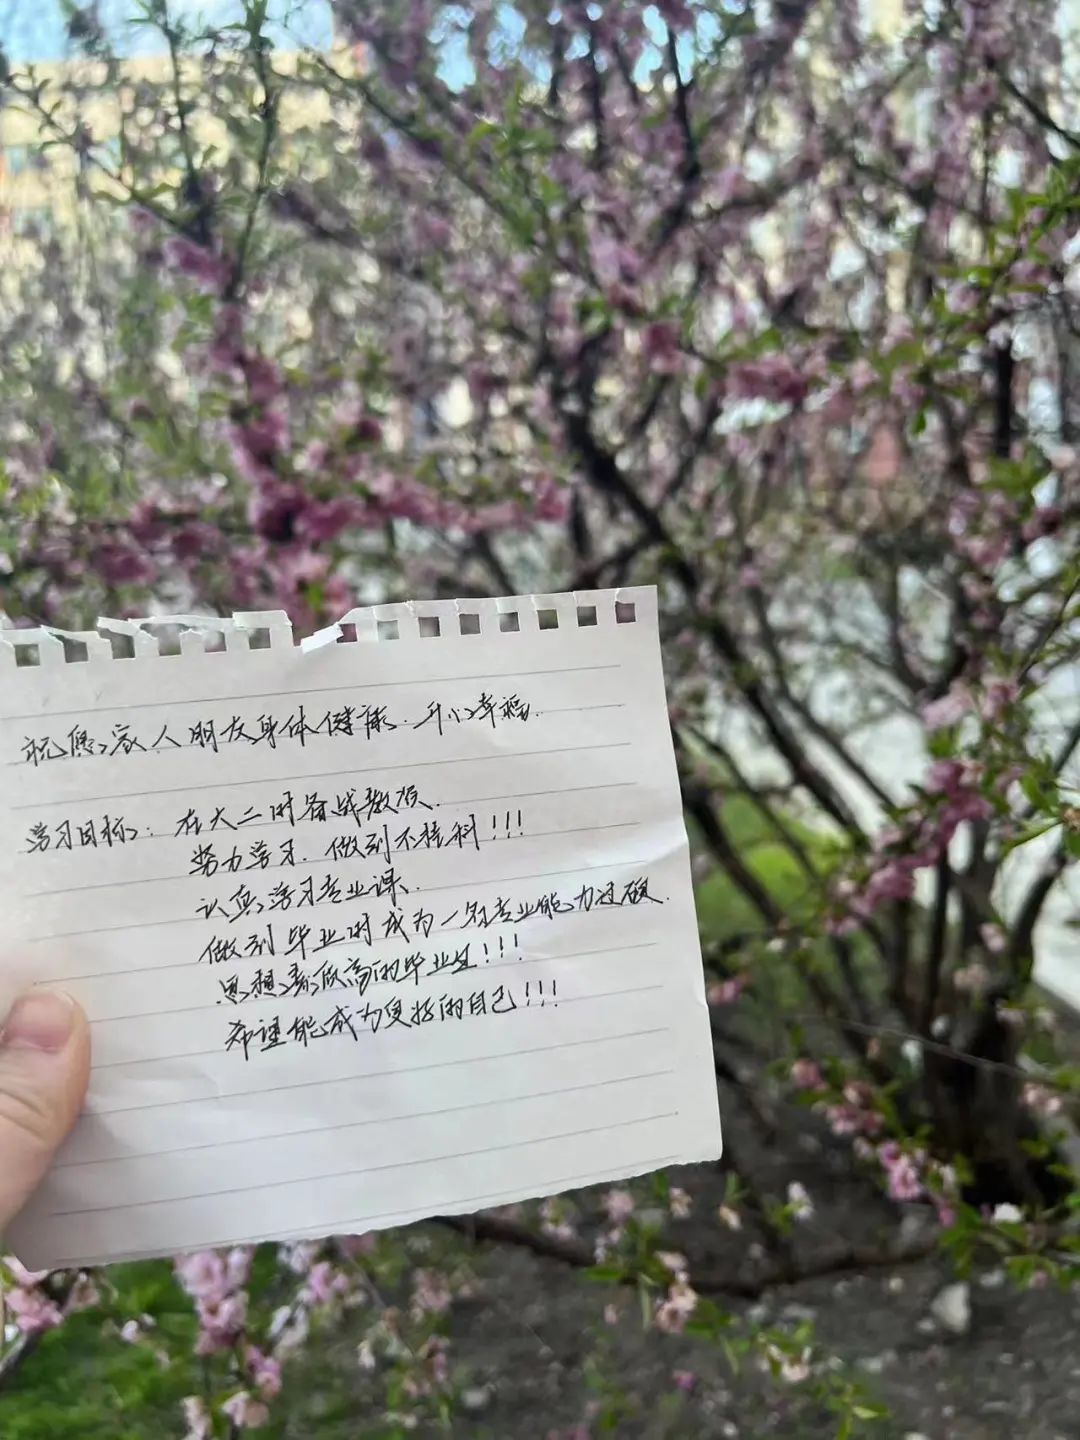 祝愿家人朋友身体健康.开心幸福.
学习目标：在大二时备战教资.
努力学习.做到不挂科!!!
认真学习专业课.
做到毕业时成为一名专业能力过硬.
思想素质高的毕业生!!!
希望能成为更好的自己!!!